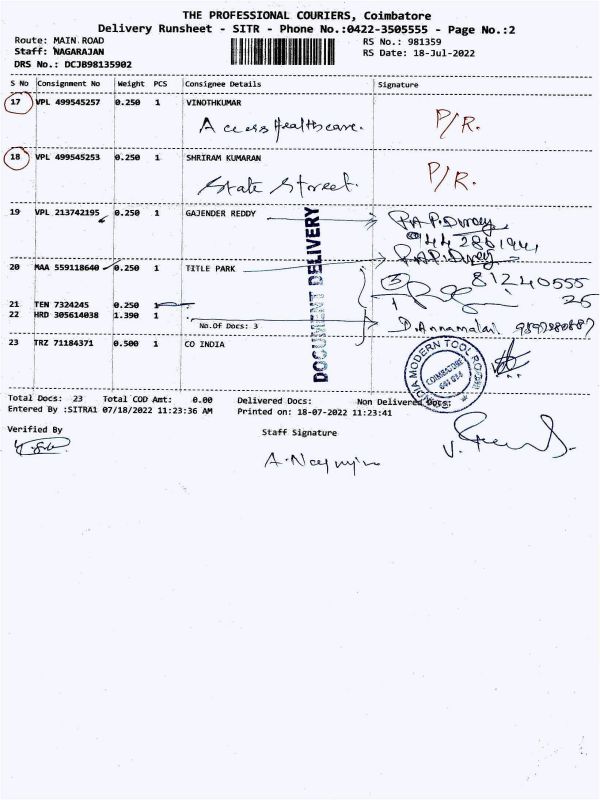 THE PROFESSIONAL COURIERS, Coimbatore
Delivery Runsheet - SITR - Phone No.:0422-3505555 - Page No.:2
Route: MAIN ROAD
RS No.: 981359
Staff: NAGARAJAN
RS Date: 18-Jul-2022
DRS No.: DCJB98135902
S No Consignment No Weight PCS Consignee Details Signature
17 VPL 499545257 0.250 1 VINOTHKUMAR
Access Healthcare. P/R.
18 VPL 499545253 0.250 1 SHRIRAM KUMARAN
State Street. P/R.
19 VPL 213742195 0.250 1 GAJENDER REDDY
DOCUMENT DELIVERY
20 MAA 559118640 0.250 1 TITLE PARK
81240555
21 TEN 7324245 0.250 1
22 HRD 305614038 1.390 1
No.Of Docs: 3 D. Annamalai
23 TRZ 71184371 0.500 1 CO INDIA
COIMBATORE
Total Docs: 23 Total COD Amt: 0.00 Delivered Docs: Non Delivered Docs:
Entered By :SITRA1 07/18/2022 11:23:36 AM Printed on: 18-07-2022 11:23:41
Verified By
Staff Signature